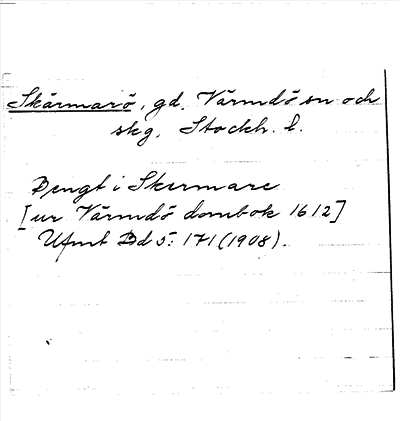 Skärmarö, gd. Värmdö sn och
skg, Stockh. l.
Bengt i Skermare
[ur Värmdö dombok 1612]
Ufmt Bd 5: 171 (1908).